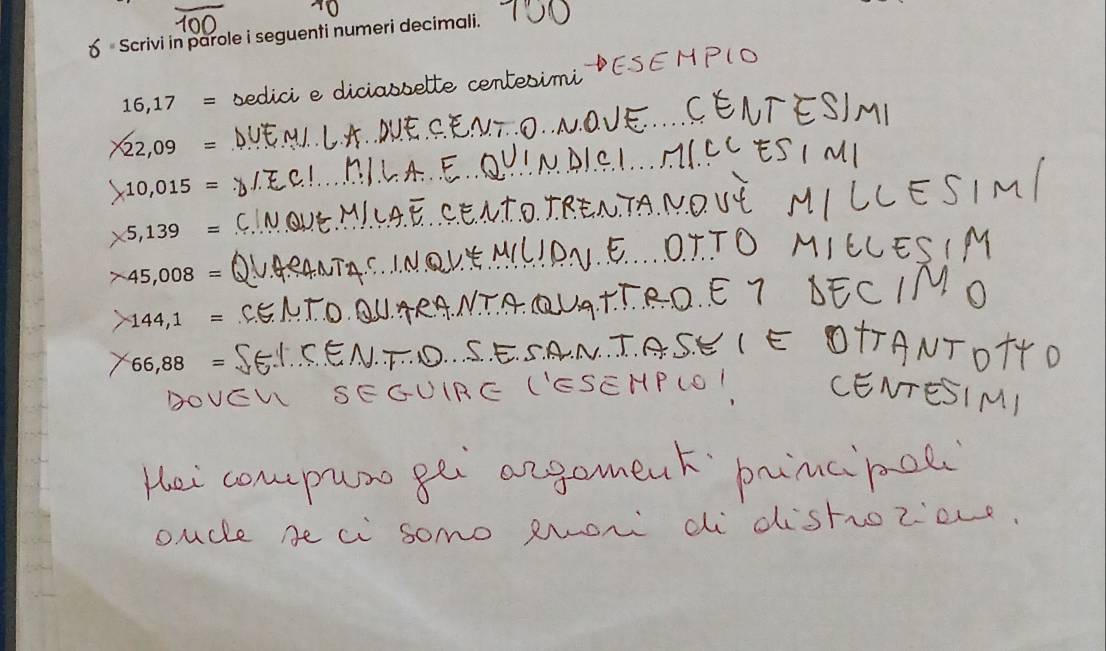 100 10 100
6 Scrivi in parole i seguenti numeri decimali.
16,17 = sedici e diciassette centesimi → ESEMPIO
22,09 = DUEMILA DUECENTO NOVE CENTESIMI
10,015 = DIECI MILA E QUINDICI MILLESIMI
5,139 = CINQUEMILAE CENTO TRENTANOVE MILLESIMI
45,008 = QUARANTACINQUEMILION E OTTO MILLESIM
144,1 = CENTO QUARANTAQUATTRO E 1 DECIMO
66,88 = SEICENTO SESANTASEI E OTTANTOTTO
CENTESIMI
DOVEVI SEGUIRE L'ESEMPIO!
Hai compreso gli argomenti principali
anche se ci sono errori di distrazione.